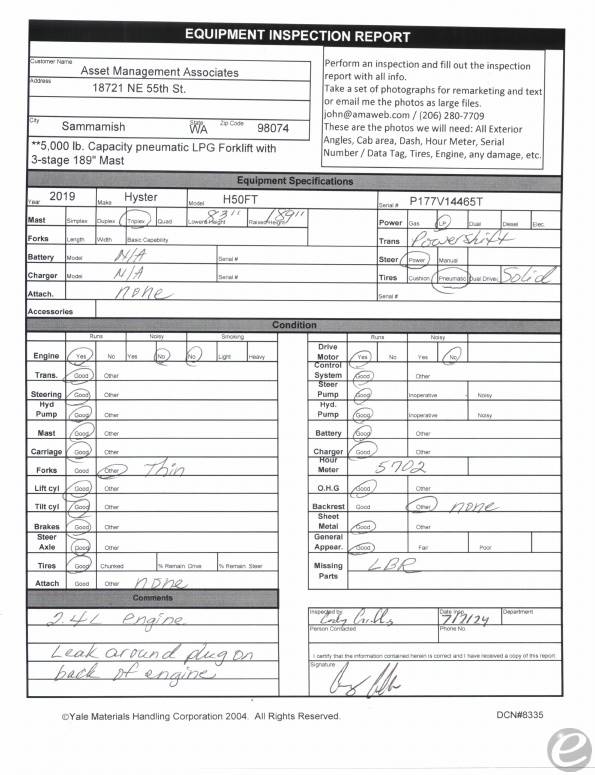 EQUIPMENT INSPECTION REPORT
Customer Name
Asset Management Associates
Address
18721 NE 55th St.
City State Zip Code
Sammamish WA 98074
**5,000 lb. Capacity pneumatic LPG Forklift with
3-stage 189" Mast
Perform an inspection and fill out the inspection
report with all info.
Take a set of photographs for remarketing and text
or email me the photos as large files.
john@amaweb.com / (206) 280-7709
These are the photos we will need: All Exterior
Angles, Cab area, Dash, Hour Meter, Serial
Number / Data Tag, Tires, Engine, any damage, etc.
Equipment Specifications
Year 2019 Make Hyster Model H50FT Serial # P177V14465T
Mast Simplex Duplex Triplex Quad Lowered Height 83" Raised Height 189" Power Gas LP Dual Diesel Elec.
Forks Length Width Basic Capability Trans Powershift
Battery Model N/A Serial # Steer Power Manual
Charger Model N/A Serial # Tires Cushion Pneumatic Dual Drive Solid
Attach. none Serial #
Accessories
Condition
Runs Noisy Smoking Runs Noisy
Engine Yes No Yes No No Light Heavy Drive Motor Yes No Yes No
Trans. Good Other Control System Good Other
Steering Good Other Steer Pump Good Inoperative Noisy
Hyd Pump Good Other Hyd. Pump Good Inoperative Noisy
Mast Good Other Battery Good Other
Carriage Good Other Charger Good Other
Forks Good Other Thin Hour Meter 5702
Lift cyl Good Other O.H.G Good Other
Tilt cyl Good Other Backrest Good Other none
Brakes Good Other Sheet Metal Good Other
Steer Axle Good Other General Appear. Good Fair Poor
Tires Good Chunked % Remain Drive % Remain Steer Missing Parts LBR
Attach Good Other none
Comments
2.4L engine
Leak around plug on
back of engine
Inspected by Date Insp. 7/7/24 Department
Person Contacted Phone No.
I certify that the information contained herein is correct and I have received a copy of this report.
Signature
©Yale Materials Handling Corporation 2004. All Rights Reserved. DCN#8335
e